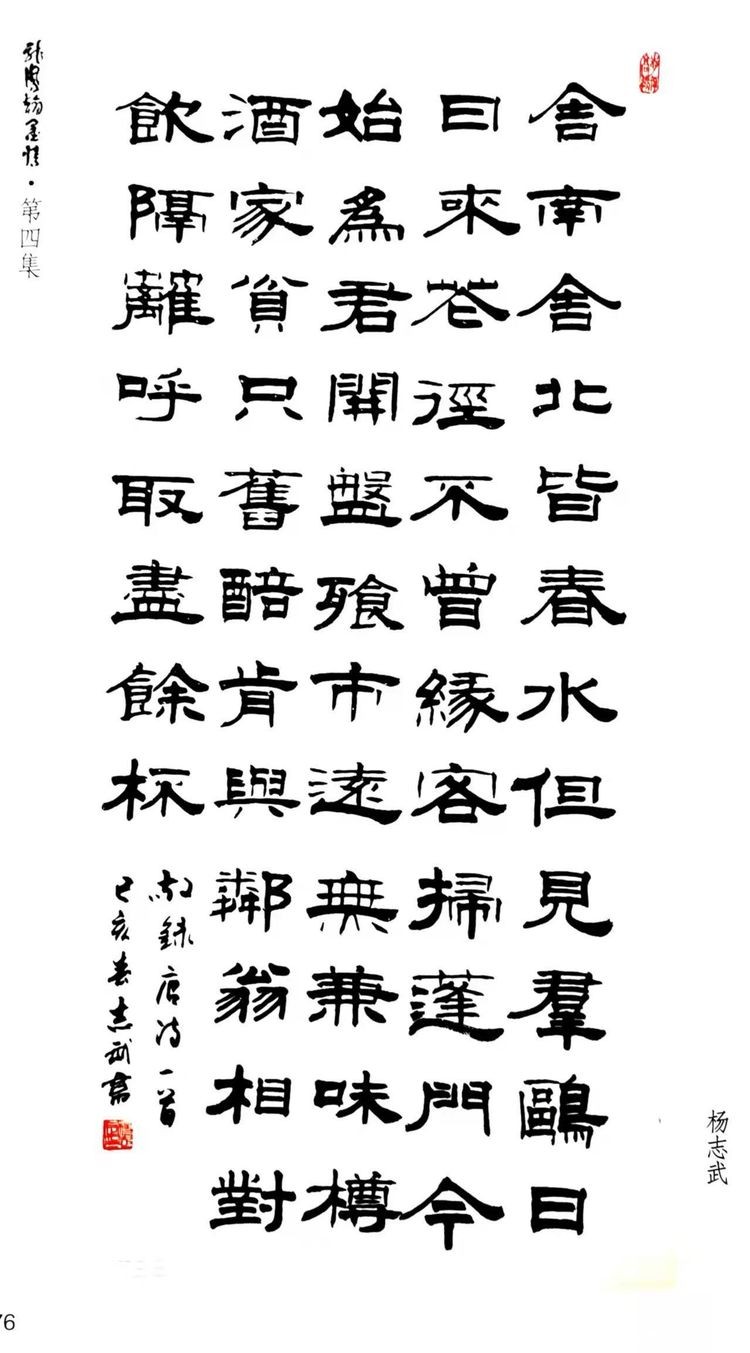 舍南舍北皆春水但見羣鷗日
日來花徑不曾緣客掃蓬門今
始爲君開盤飱市遠無兼味樽
酒家貧只舊醅肯與鄰翁相對
飲隔離呼取盡餘杯
敬錄唐詩一首
己亥春志武書
翰墨情·第四集
杨志武
76